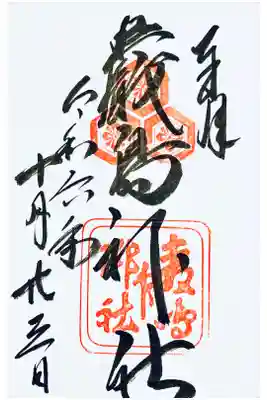 奉拝
嚴島神社
令和六年
十月廿三日
嚴島神社